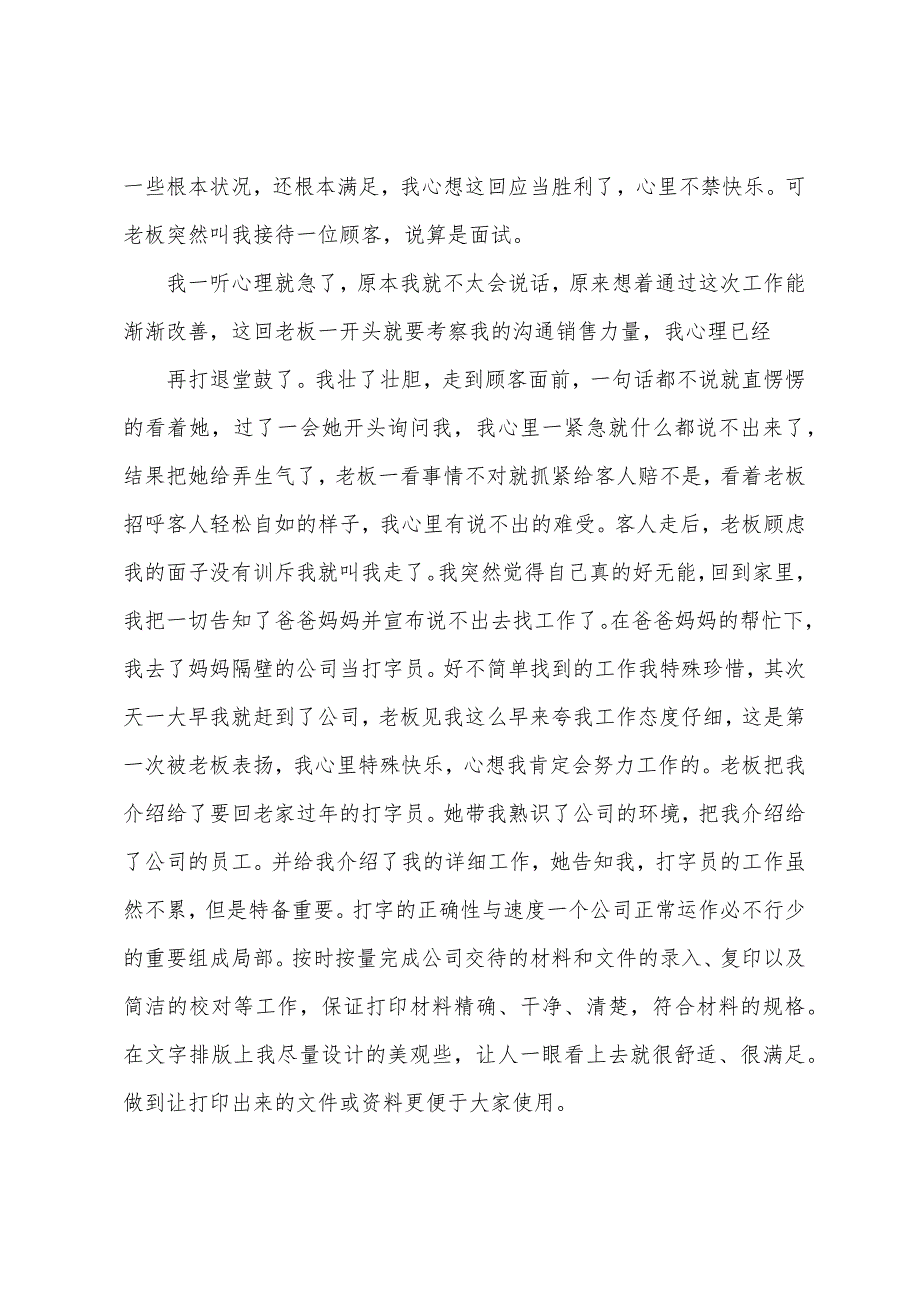 一些根本状况，还根本满足，我心想这回应当胜利了，心里不禁快乐。可
老板突然叫我接待一位顾客，说算是面试。
我一听心理就急了，原本我就不太会说话，原来想着通过这次工作能
渐渐改善，这回老板一开头就要考察我的沟通销售力量，我心理已经
再打退堂鼓了。我壮了壮胆，走到顾客面前，一句话都不说就直愣愣
的看着她，过了一会她开头询问我，我心里一紧急就什么都说不出来了，
结果把她给弄生气了，老板一看事情不对就抓紧给客人赔不是，看着老板
招呼客人轻松自如的样子，我心里有说不出的难受。客人走后，老板顾虑
我的面子没有训斥我就叫我走了。我突然觉得自己真的好无能，回到家里，
我把一切告知了爸爸妈妈并宣布说不出去找工作了。在爸爸妈妈的帮忙下，
我去了妈妈隔壁的公司当打字员。好不简单找到的工作我特殊珍惜，其次
天一大早我就赶到了公司，老板见我这么早来夸我工作态度仔细，这是第
一次被老板表扬，我心里特殊快乐，心想我肯定会努力工作的。老板把我
介绍给了要回老家过年的打字员。她带我熟识了公司的环境，把我介绍给
了公司的员工。并给我介绍了我的详细工作，她告知我，打字员的工作虽
然不累，但是特备重要。打字的正确性与速度一个公司正常运作必不行少
的重要组成局部。按时按量完成公司交待的材料和文件的录入、复印以及
简洁的校对等工作，保证打印材料精确、干净、清楚，符合材料的规格。
在文字排版上我尽量设计的美观些，让人一眼看上去就很舒适、很满足。
做到让打印出来的文件或资料更便于大家使用。